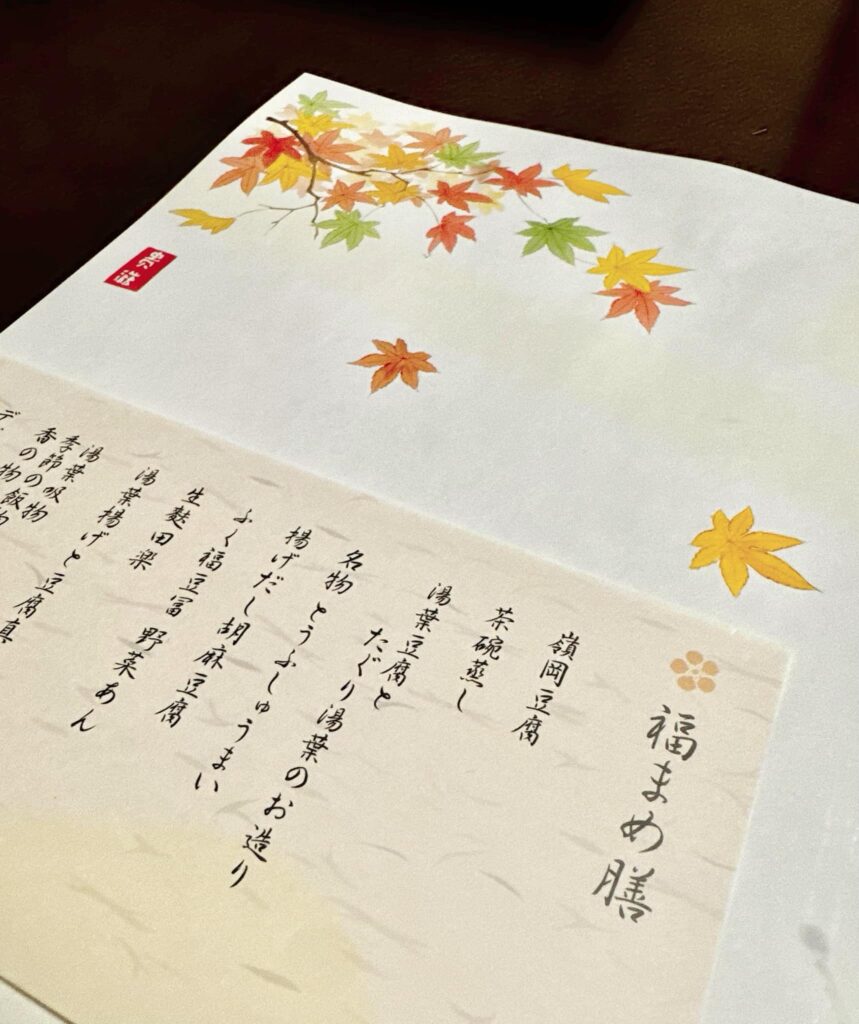 福まめ膳
嶺岡豆腐
茶碗蒸し
湯葉豆腐と
たぐり湯葉のお造り
名物 とうふしゅうまい
揚げだし胡麻豆腐
ふく福豆冨 野菜あん
生麩田楽
湯葉揚げと豆腐真
湯葉
季節の吸物
香の物
デ